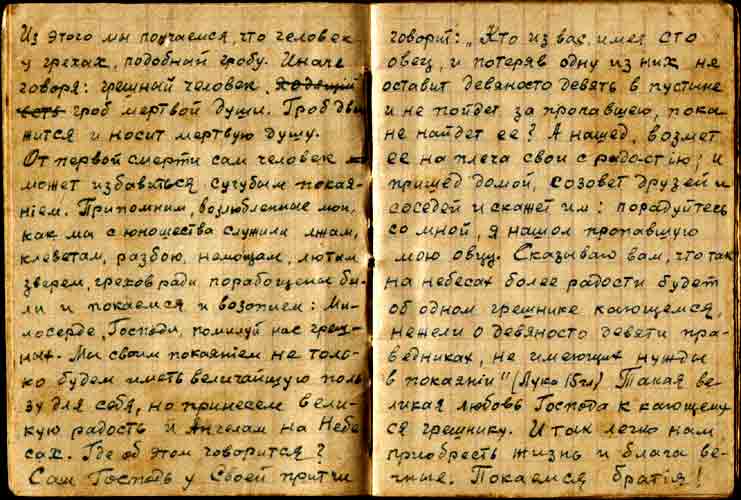 Из этого мы поучаемся, что человек
у грехах, подобный гробу. Иначе
говоря: грешный человек, ходящий
есть гроб мертвой души. Гроб дви
жится и носит мертвую душу.
От первой смерти сам человек
может избавиться сугубым покая-
нiем. Припомним, возлюбленные мои,
как мы с юношества служили лжам,
клеветам, разбою, немощам, лютым
зверем, грехов ради порабощены бы-
ли и покаемся и возопием: Ми-
лосерде, Господи, помилуй нас греш-
ных. Мы своим покаянiем не толь-
ко будем иметь величайшую поль
зу для себя, но принесем вели-
кую радость и Ангелам на Небе
сах. Где об этом говорится?
Сам Господь у Своей притчи
говорит: „Кто из вас, имея сто
овец, и потеряв одну из них не
оставит девяносто девять в пустине
и не пойдет за пропавшею, пока
не найдет ее? А нашед, возмет
ее на плеча свои с радостiю; и
пришед домой, созовет друзей и
соседей и скажет им: порадуйтесь
со мной, я нашол пропавшую
мою овцу. Сказываю вам, что так
на небесах более радости будет
об одном грешнике кающемся,
нежели о девяносто девяти пра-
ведниках, не имеющих нужды
в покаянiи" (Лука 15 гл) Такая ве-
ликая любовь Господа к кающему
ся грешнику. И так легко нам
приобресть жизнь и блага ве-
чные. Покаемся братiя!